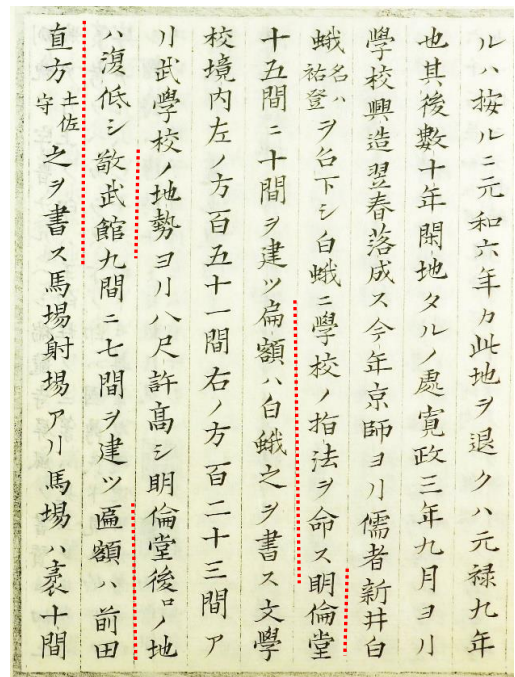 ルハ按ルニ元和六年カ此地ヲ退クハ元禄九年
也其後數十年閑地タルノ處寛政三年九月ヨリ
學校興造翌春落成ス今年京師ヨリ儒者新井白
蛾名ハ祐登ヲ召下シ白蛾ニ學校ノ指法ヲ命ス明倫堂
十五間ニ十間ヲ建ツ扁額ハ白蛾之ヲ書ス文學
校境内左ノ方百五十一間右ノ方百二十三間ア
リ武學校ノ地勢ヨリ八尺許高シ明倫堂後ロノ地
ハ復低シ敬武館九間ニ七間ヲ建ツ匾額ハ前田
直方土佐守之ヲ書ス馬場射場アリ馬場ハ袤十間